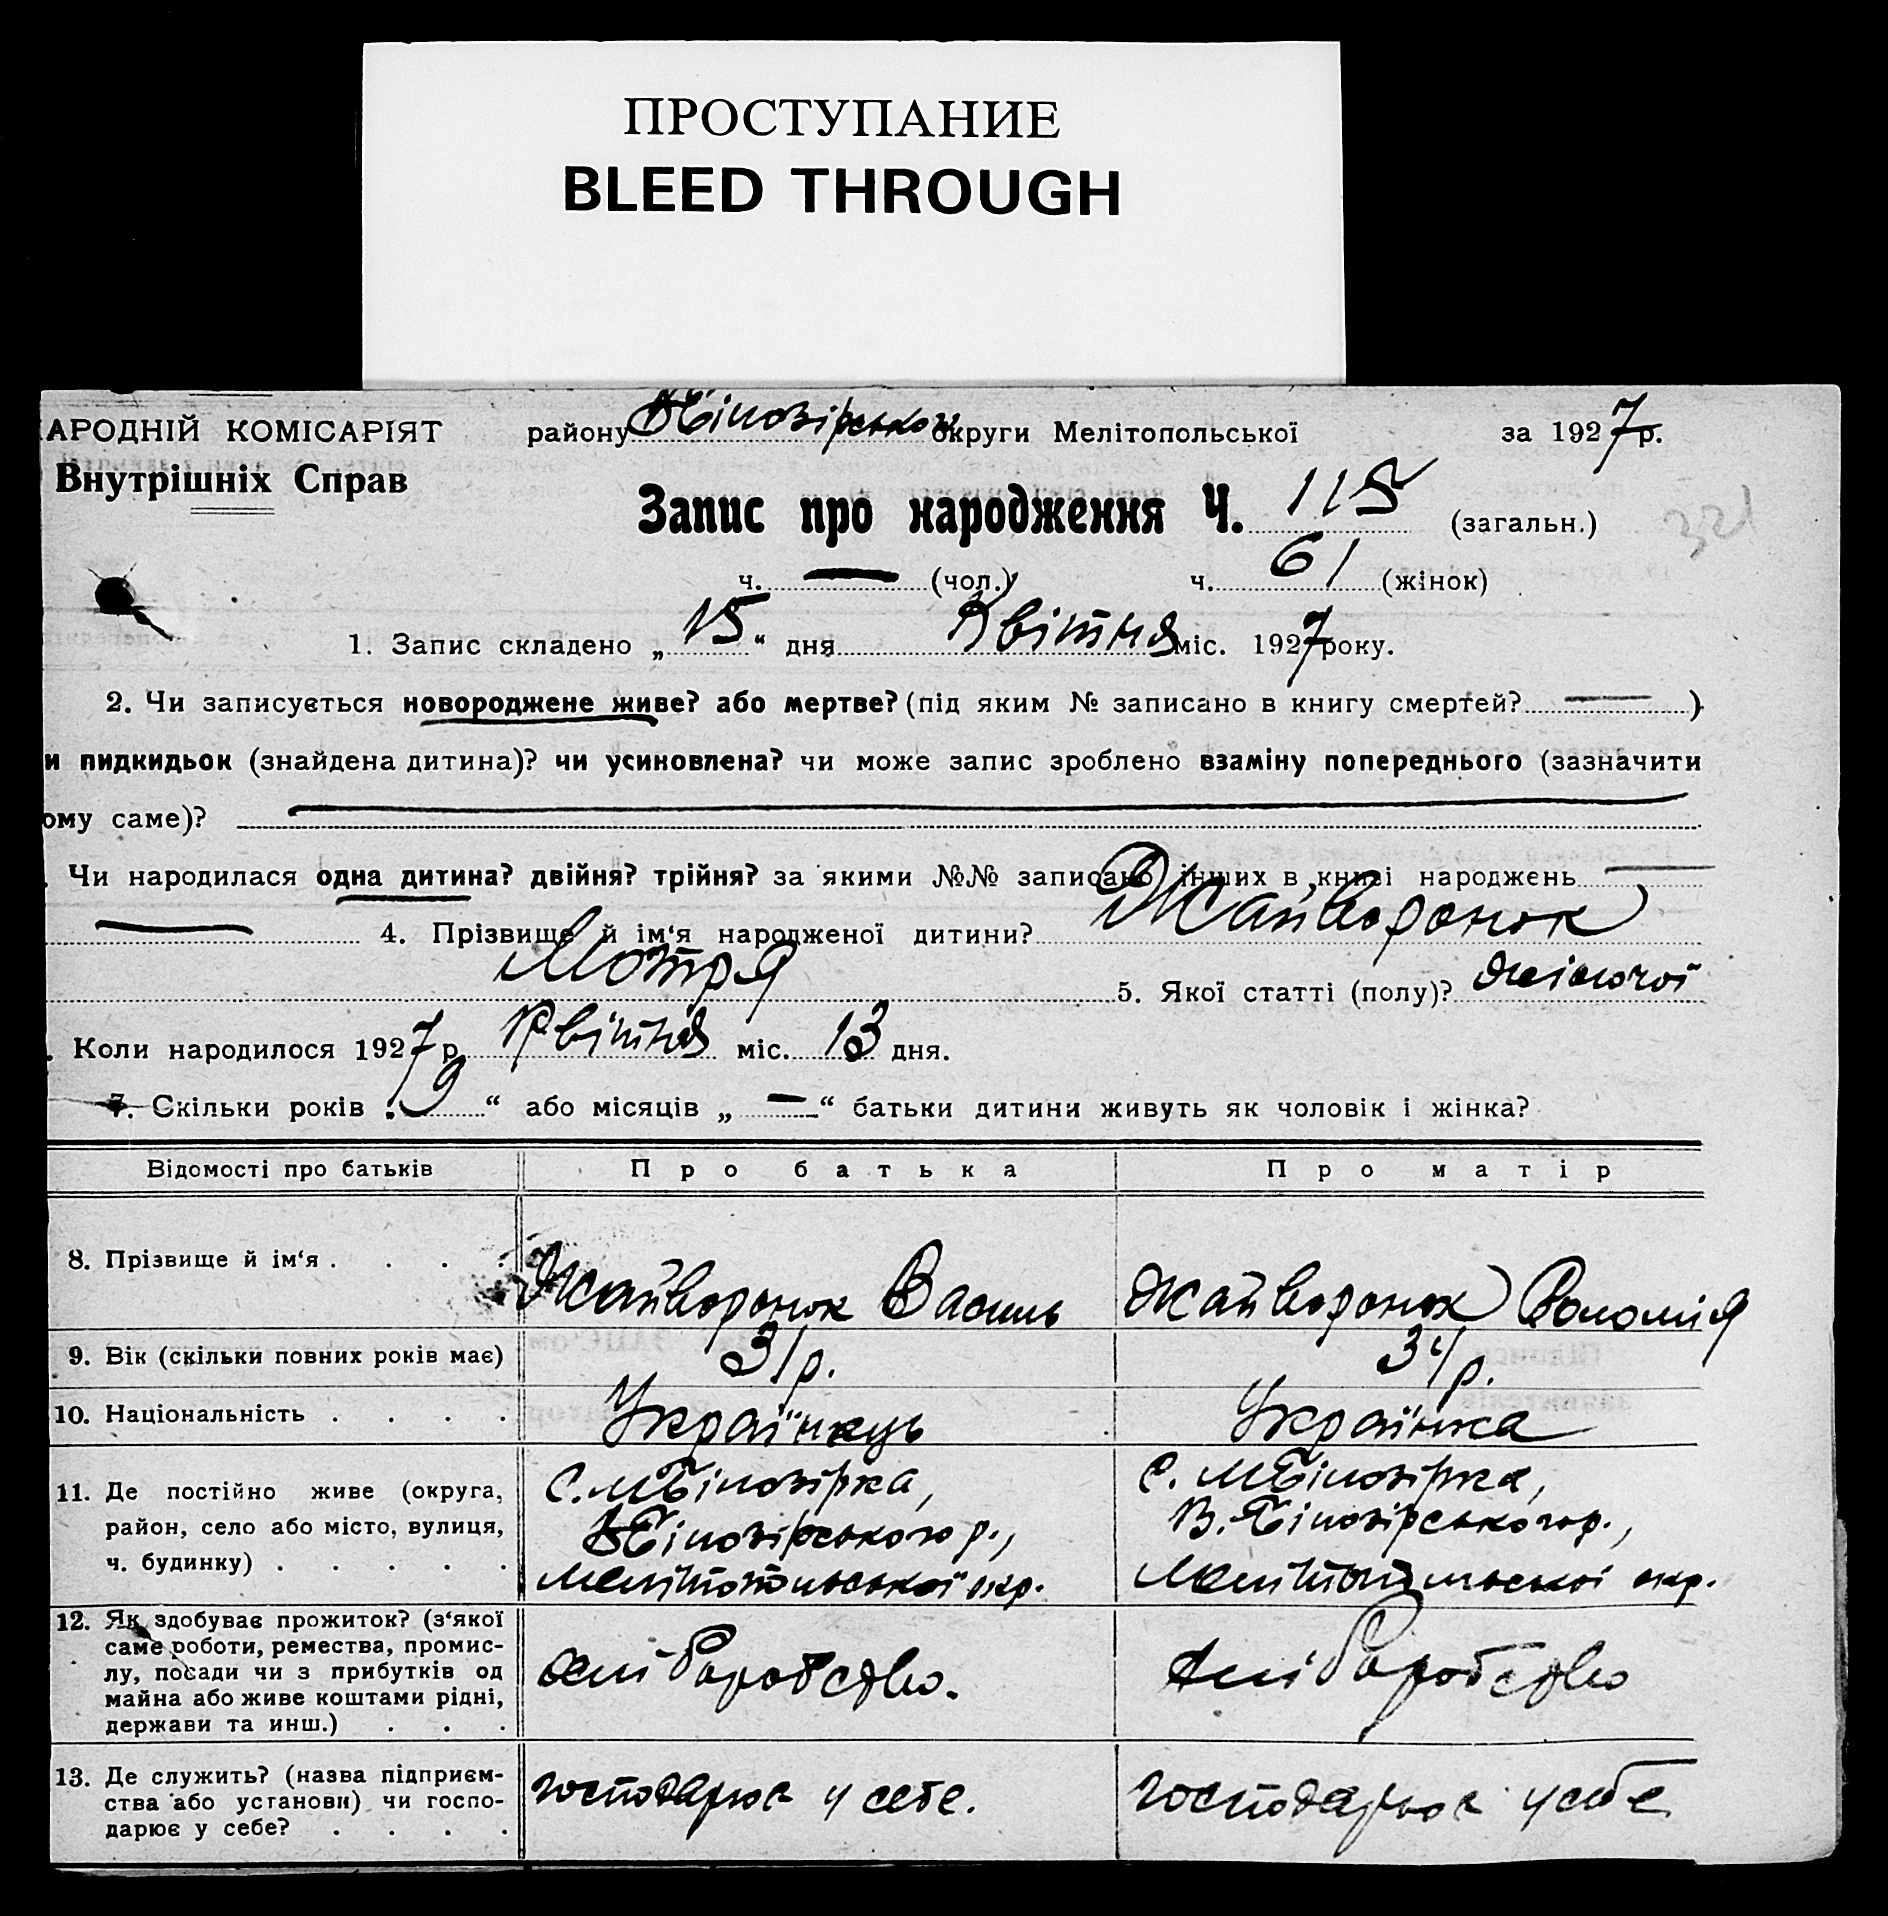 ПРОСТУПАНИЕ
BLEED THROUGH
АРОДНІЙ КОМІСАРІЯТ району В Білозірської округи Мелітопольської за 1927 р.
Внутрішніх Справ
Запис про народження Ч. 115 (загальн.) 321
ч. — (чол.) ч. 61 (жінок)
1. Запис складено „ 15 “ дня Квітня міс. 1927 року.
2. Чи записується новороджене живе? або мертве? (під яким № записано в книгу смертей? — )
и пидкидьок (знайдена дитина)? чи усиновлена? чи може запис зроблено взаміну попереднього (зазначити
ому саме)? —
. Чи народилася одна дитина? двійня? трійня? за якими №№ записано інших в книзі народжень —
— 4. Прізвище й ім‘я народженої дитини? Жайворонок
Мотря 5. Якої статті (полу)? жіночої
. Коли народилося 1927 р. Квітня міс. 13 дня.
7. Скільки років „ 9 “ або місяців „ — “ батьки дитини живуть як чоловік і жінка?
Відомості про батьків Про батька Про матір
8. Прізвище й ім‘я . . . . Жайворонок Василь Жайворонок Соломія
9. Вік (скільки повних років має) 31 р. 34 р.
10. Національність . . . . Українець Українка
11. Де постійно живе (округа, район, село або місто, вулиця, ч. будинку) . . . . .
с. М Білозірка, В Білозірського р., Мелітопольської окр.
с. М Білозірка, В. Білозірського р., Мелітопольської окр.
12. Як здобуває прожиток? (з‘якої
саме роботи, ремества, промис-
лу, посади чи з прибутків од
майна або живе коштами рідні,
держави та инш.) . . .
хліборобство. хліборобство
13. Де служить? (назва підприєм-
ства або установи) чи госпо-
дарює у себе? . . . .
господарює у себе. господарює у себе